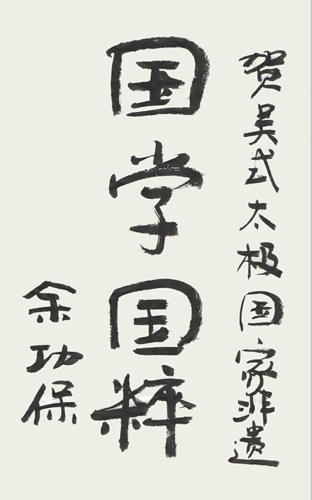 贺吴式太极国家非遗
国学国粹
余功保